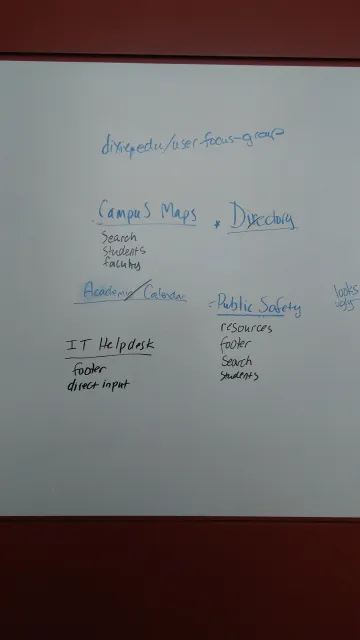 dixie.edu/user-focus-group
Campus Maps
Search
students
faculty
* Directory
Academic Calendar
Public Safety
resources
footer
Search
students
IT Helpdesk
footer
direct input
looks
ugly